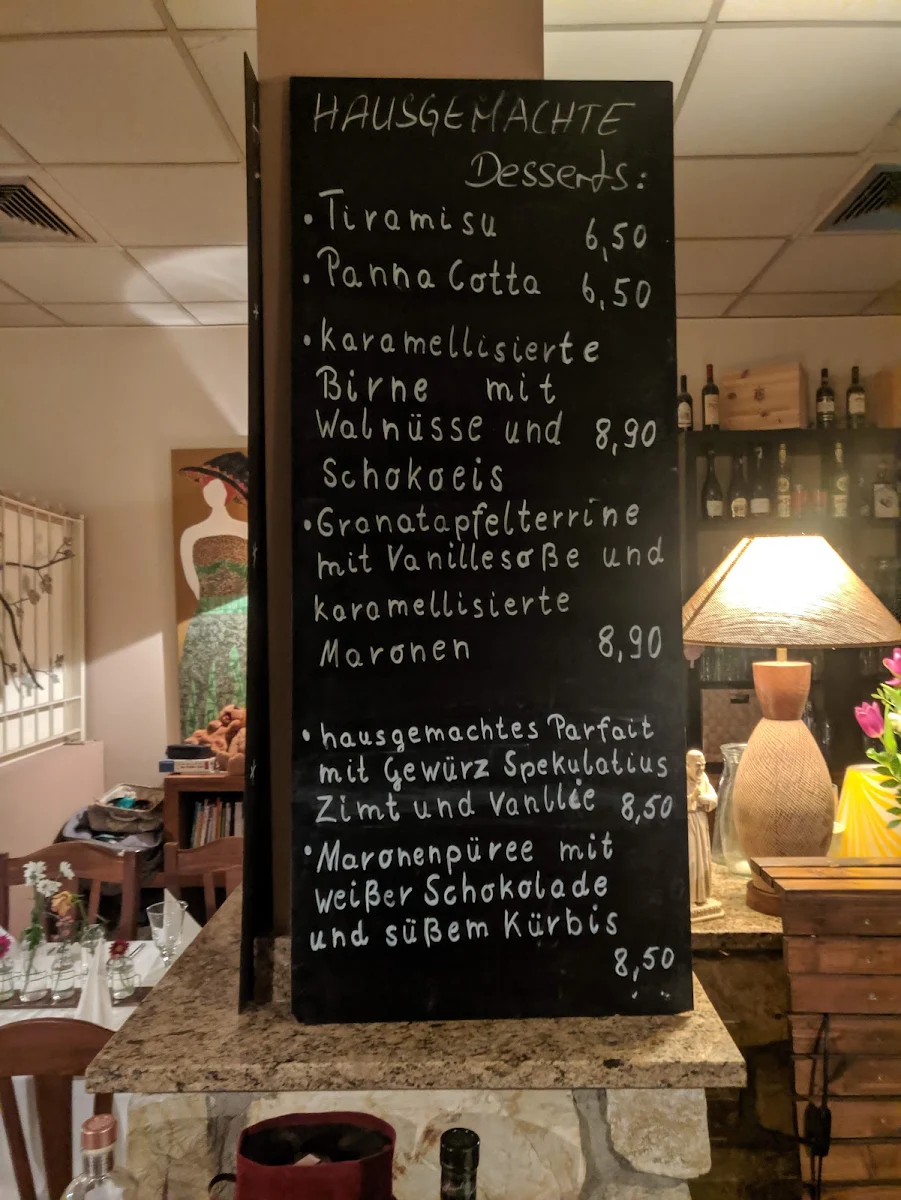 HAUSGEMACHTE
Desserts:
• Tiramisu 6,50
• Panna Cotta 6,50
• karamellisierte
Birne mit
Walnüsse und 8,90
Schokoeis
• Granatapfelterrine
mit Vanillesoße und
karamellisierte
Maronen 8,90
• hausgemachtes Parfait
mit Gewürz Spekulatius
Zimt und Vanllie 8,50
• Maronenpüree mit
weißer Schokolade
und süßem Kürbis
8,50